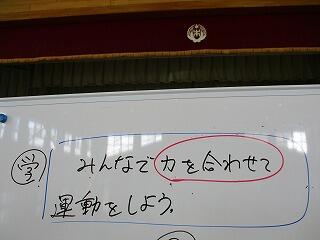 学 みんなで力を合わせて
運動をしよう。